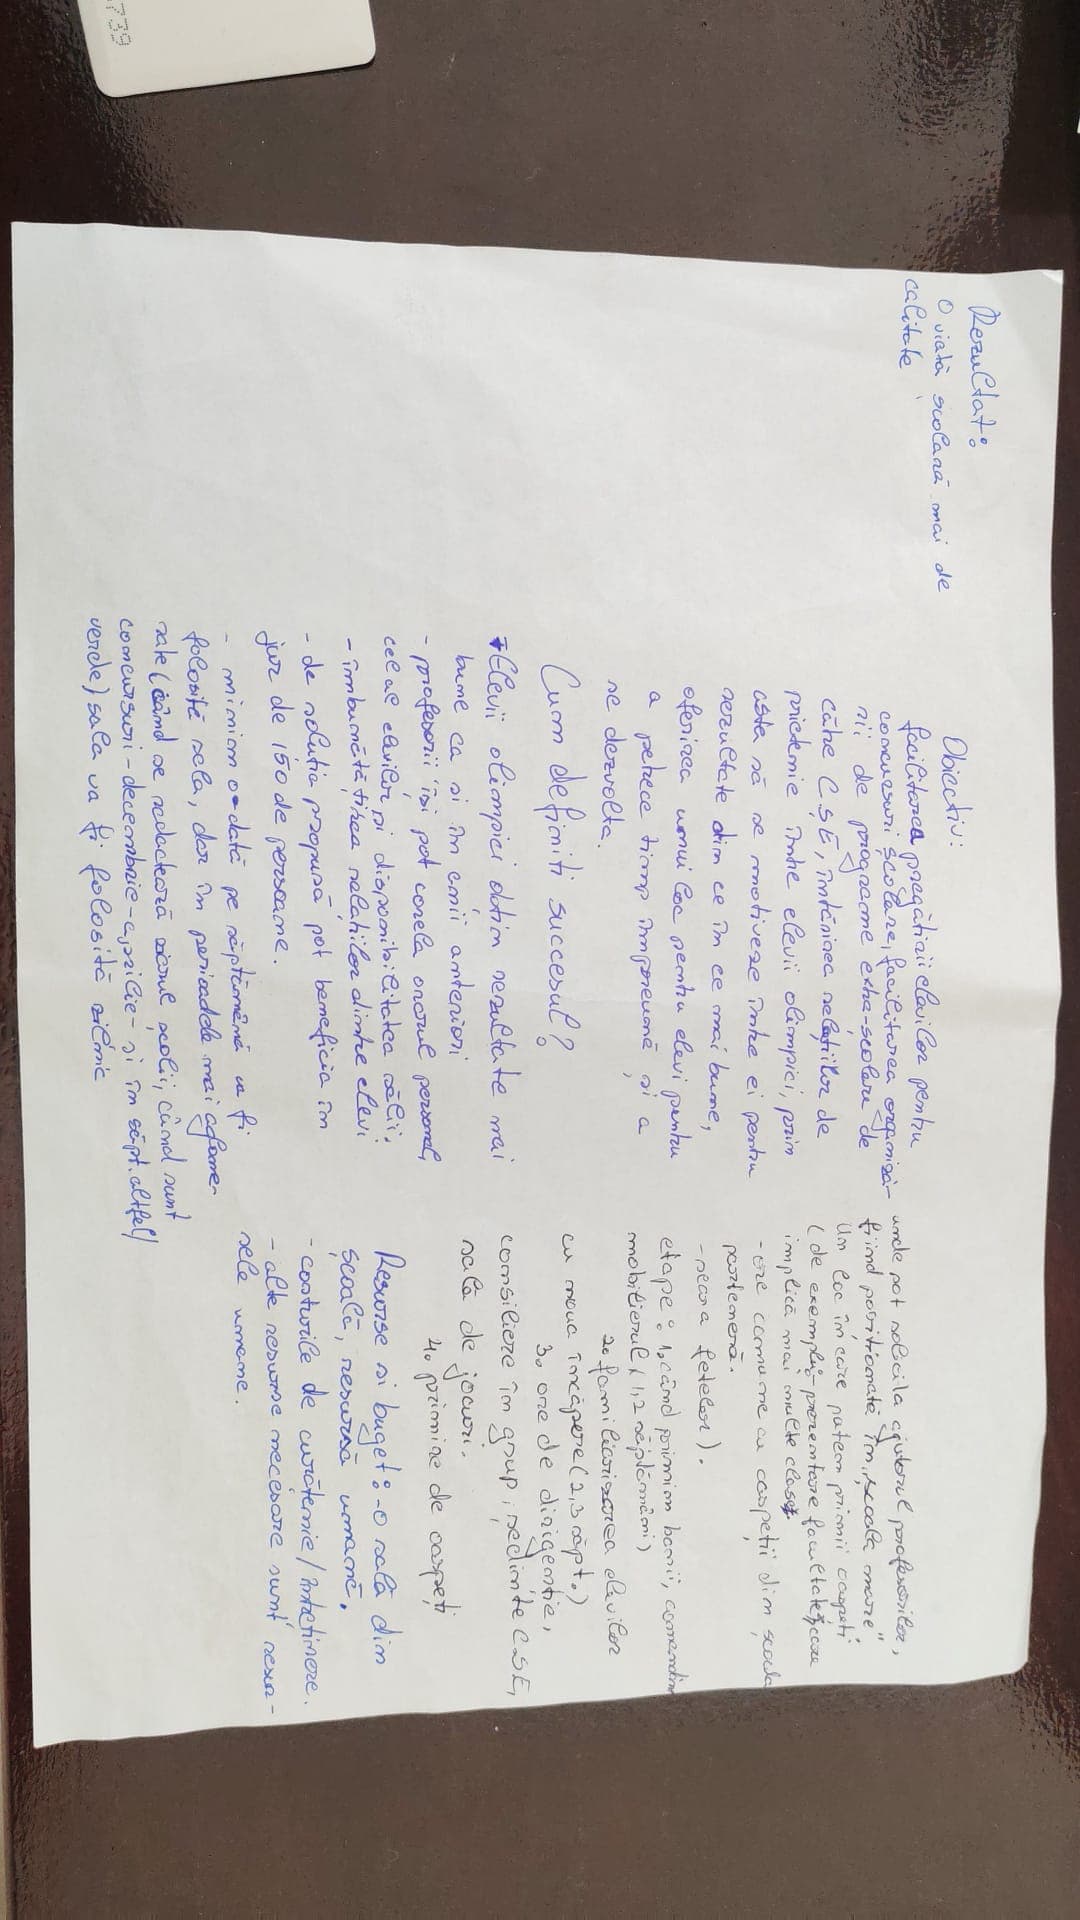 739
Rezultat:
O viată scolară mai de
calitate
Obiectiv:
facilitarea pregătirii elevilor pentru
concursuri școlare, facilitarea organiză-
rii de programe extra-școlare de
către CȘE, întărirea relațiilor de
prietenie între elevii olimpici, prin
asta să se motiveze între ei pentru
rezultate din ce în ce mai bune,
oferirea unui loc pentru elevi pentru
a petrece timp împreună și a
se dezvolta.
Cum definiti succesul?
Elevii olimpici obtin rezultate mai
bune ca si în anii anteriori
- profesorii își pot corela orarul personal,
cel al elevilor si disponibilitatea sălii;
- îmbunătățirea relațiilor dintre elevi
- de soluția propusă pot beneficia în
jur de 150 de persoane.
- minim o dată pe săptămână va fi
folosită sala, dar în perioadele mai aglome-
rate (când se redactează ziarul școlii, când sunt
concursuri - decembrie - aprilie - si în săpt. altfel/
verde) sala va fi folosită zilnic
unde pot solicita ajutorul profesorilor,
fiind poziționată în "școala mare"
Un loc în care putem primii oaspeți
(de exemplu - prezentare facultate, care
implică mai multe clase)
- ore comune cu oaspeții din școala
parteneră.
- seara fetelor).
etape: 1. când primim banii, comandăm
mobilierul (1,2 săptămâni)
2. familiarizarea elevilor
cu noua încăpere (2,3 săpt.)
3. ore de dirigenție,
consiliere în grup, ședințe CȘE,
sală de jocuri.
4. primire de oaspeți
Resurse si buget: - O sală din
școală, resursă umană.
- costurile de curățenie/întreținere.
- alte resurse necesare sunt resur-
sele umane.